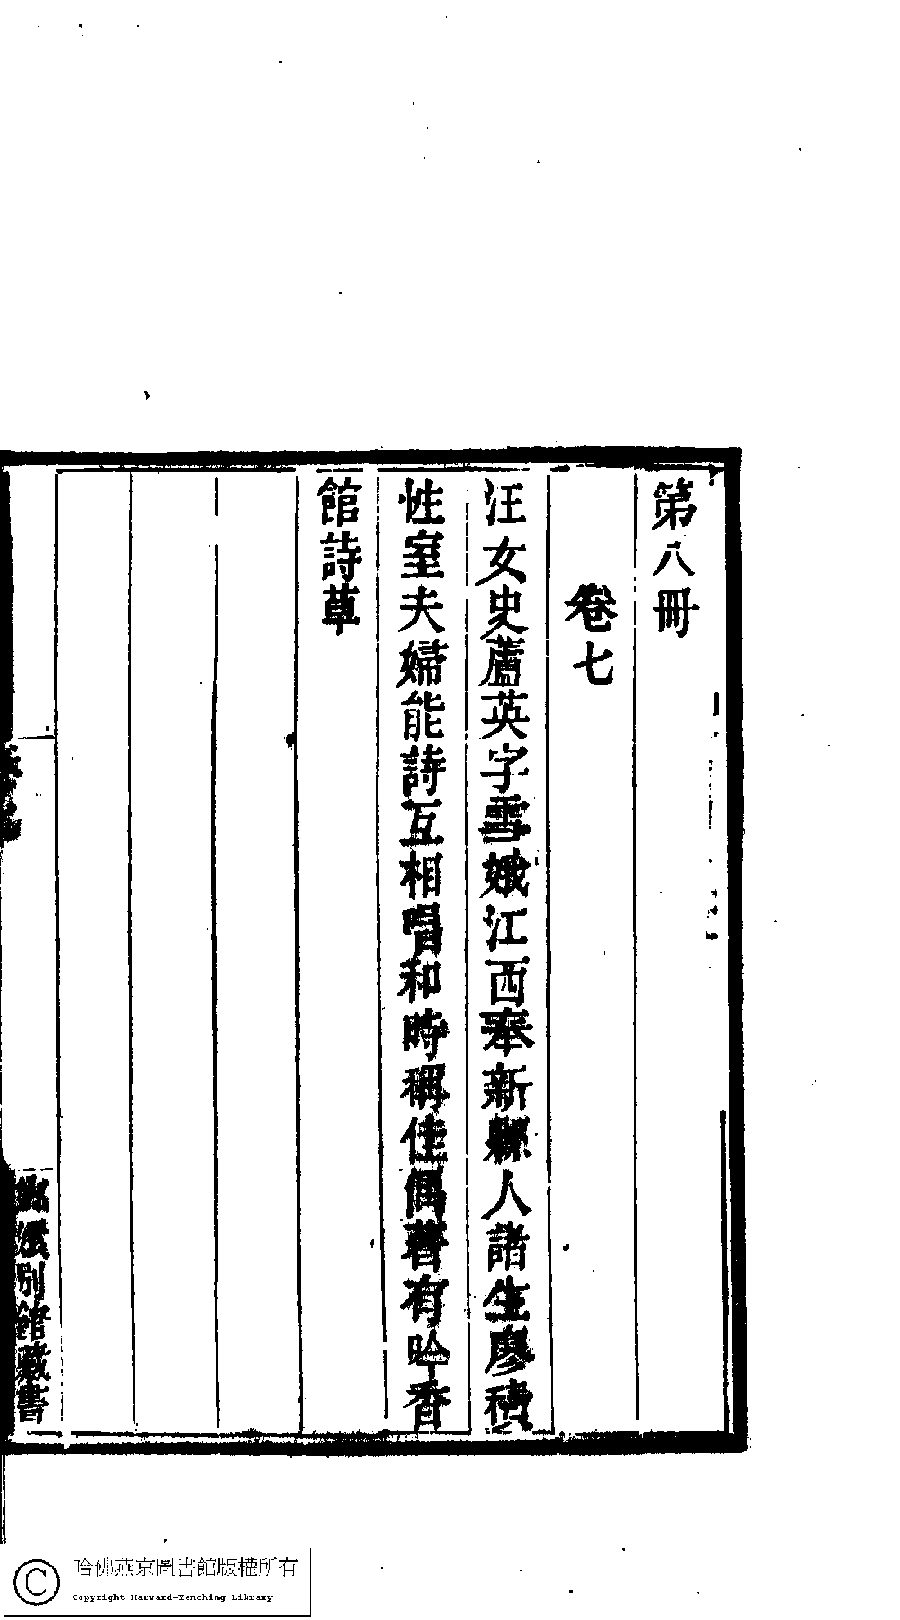 第八冊
卷七
汪女史蘆英字雪娥江西奉新縣人諸生廖積
性室夫婦能詩互相唱和時稱佳偶著有吟香
館詩草
嬛別館藏書
哈佛燕京圖書館版權所有
Copyright Harvard-Yenching Library